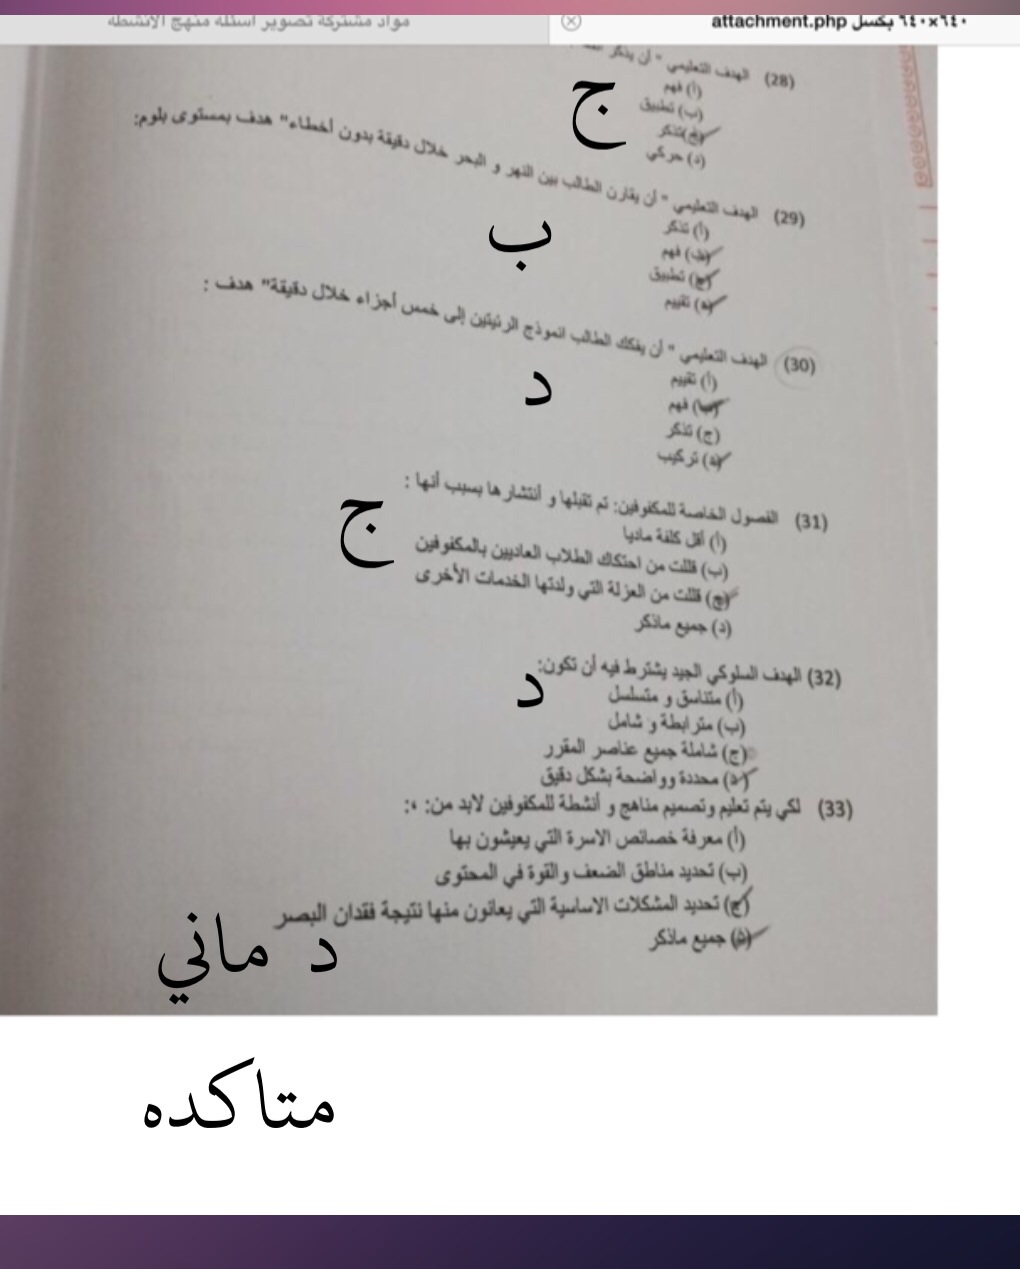 مواد مشتركة تصوير اسئلة منهج الانشطه
attachment.php ٦٤٠×٦٤٠ بكسل
(28) الهدف التعليمي " أن يذكر
(أ) فهم
(ب) تطبيق
(ج) تذكر
(د) حركي
ج
(29) الهدف التعليمي " أن يقارن الطالب بين النهر و البحر خلال دقيقة بدون أخطاء" هدف بمستوى بلوم:
(أ) تذكر
(ب) فهم
(ج) تطبيق
(د) تقييم
ب
(30) الهدف التعليمي " أن يفكك الطالب انموذج الرئيتين إلى خمس أجزاء خلال دقيقة" هدف :
(أ) تقييم
(ب) فهم
(ج) تذكر
(د) تركيب
د
(31) الفصول الخاصة للمكفوفين: تم تقبلها و أنتشارها بسبب أنها :
(أ) أقل كلفة ماديا
(ب) قللت من احتكاك الطلاب العاديين بالمكفوفين
(ج) قللت من العزلة التي ولدتها الخدمات الأخرى
(د) جميع ماذكر
ج
(32) الهدف السلوكي الجيد يشترط فيه أن تكون:
(أ) متناسق و متسلسل
(ب) مترابطة و شامل
(ج) شاملة جميع عناصر المقرر
(د) محددة وواضحة بشكل دقيق
د
(33) لكي يتم تعليم وتصميم مناهج و أنشطة للمكفوفين لابد من: ،:
(أ) معرفة خصائص الاسرة التي يعيشون بها
(ب) تحديد مناطق الضعف والقوة في المحتوى
(ج) تحديد المشكلات الاساسية التي يعانون منها نتيجة فقدان البصر
(د) جميع ماذكر
د ماني
متاكده